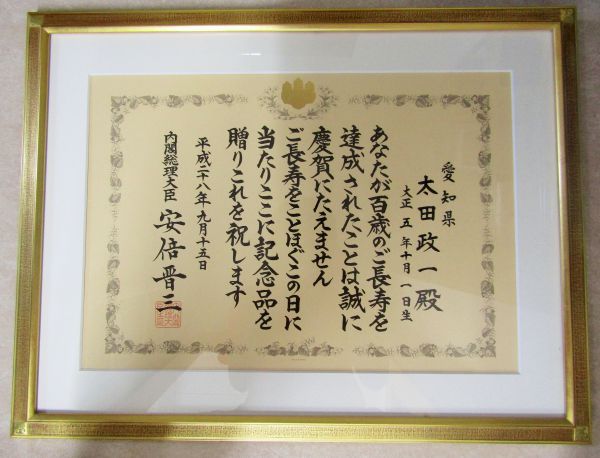 愛知県
太田政一殿
大正五年十月一日生
あなたが百歳のご長寿を
達成されたことは誠に
慶賀にたえません
ご長寿をことほぐこの日に
当たりここに記念品を
贈りこれを祝します
平成二十八年九月十五日
内閣総理大臣 安倍晋三